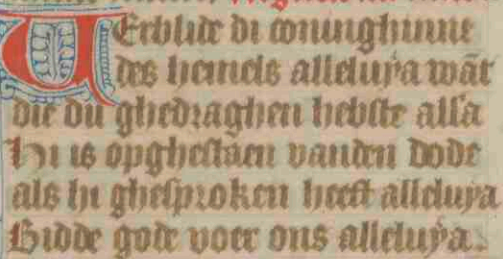 Verblide di coninghinne
des hemels alleluya wāt
die du ghedraghen hebste alla
Hi is opghestaen vanden dode
als hi ghesproken heeft alleluya
Bidde gode voer ons alleluya.